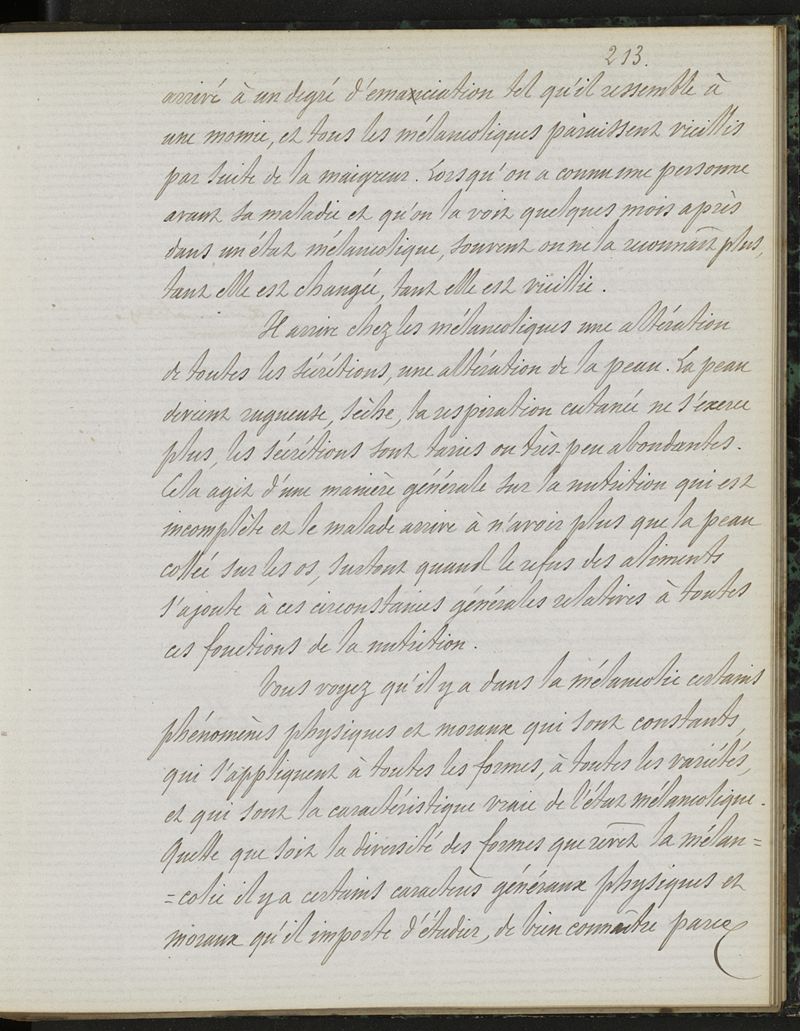 213.
arrivé à un degré d'emaxiciation tel qu'il ressemble à
une momie, et tous les mélancoliques paraissent vieillis
par suite de la maigreur. Lorsqu'on a connu une personne
avant sa maladie et qu'on la voit quelques mois après
dans un état mélancolique, souvent on ne la reconnaît plus,
tant elle est changée, tant elle est vieillie.
Il arrive chez les mélancoliques une altération
de toutes les sécrétions, une altération de la peau. La peau
devient rugueuse, sèche, la respiration cutanée ne s'exerce
plus, les sécrétions sont taries ou très peu abondantes.
Cela agit d'une manière générale sur la nutrition qui est
incomplète et le malade arrive à n'avoir plus que la peau
collée sur les os, surtout quand le refus des aliments
s'ajoute à ces circonstances générales relatives à toutes
ces fonctions de la nutrition.
Vous voyez qu'il y a dans la mélancolie certains
phénomènes physiques et moraux qui sont constants,
qui s'appliquent à toutes les formes, à toutes les variétés,
et qui sont la caractéristique vraie de l'état mélancolique.
Quelle que soit la diversité des formes que revêt la mélan=
=colie il y a certains caractères généraux physiques et
moraux qu'il importe d'étudier, de bien connaître parce